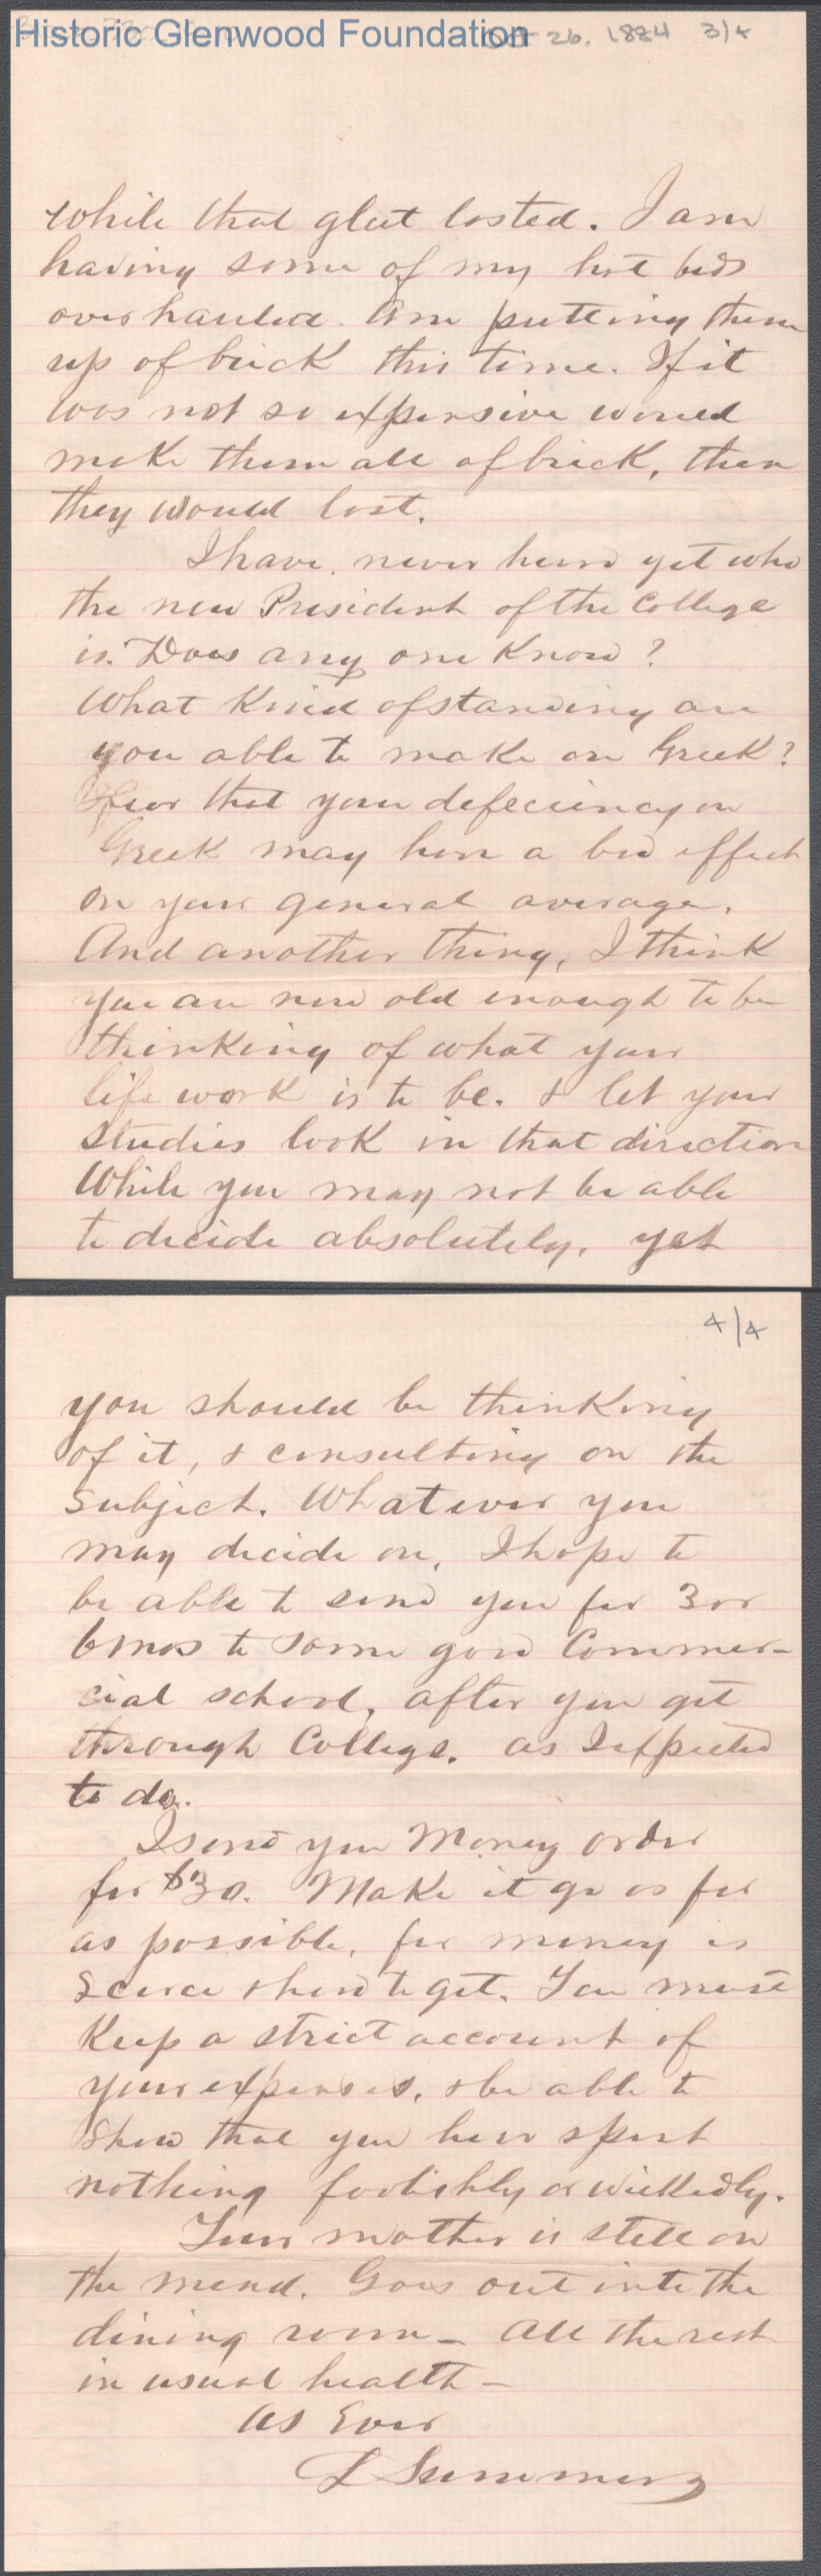 Historic Glenwood Foundation
Oct 26, 1884 3/4
while that glut lasted. I am
having some of my hot beds
overhauled. Am putting them
up of brick this time. If it
was not so expensive would
make them all of brick, then
they would last.
I have never heard yet who
the new President of the College
is. Does any one know?
What kind of standing are
you able to make on Greek?
I fear that your defeciency on
Greek may have a bad effect
on your general average.
And another thing, I think
you are now old enough to be
thinking of what your
life work is to be. & let your
studies look in that direction
While you may not be able
to decide absolutely, yet
4/4
you should be thinking
of it, & consulting on the
subject. Whatever you
may decide on, I hope to
be able to send you for 3 or
6 mos to some good Commer-
cial school, after you get
through College. as I expected
to do.
I send you Money order
for $30. Make it go as far
as possible, for money is
scarce & hard to get. You must
Keep a strict account of
your expenses, & be able to
show that you have spent
nothing foolishly or wickedly.
Your mother is still on
the mend. Goes out into the
dining room - All the rest
in usual health -
As Ever
L Summers